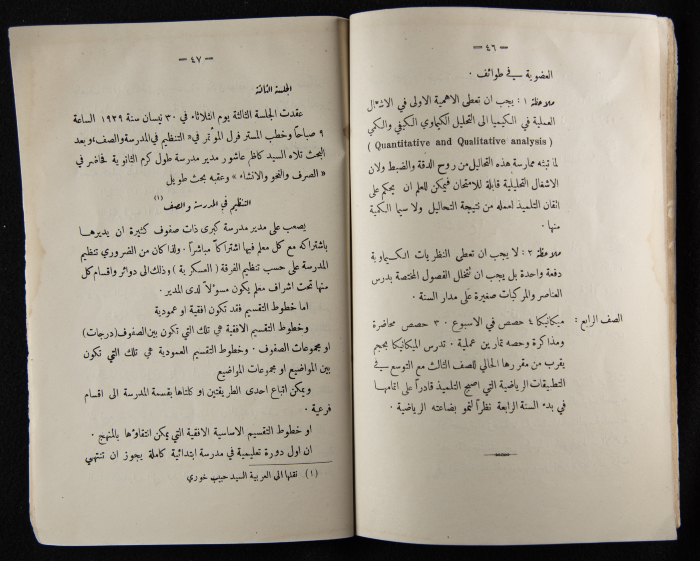 — ٤٦ —
العضوية في طوائف .
ملاحظة ١ : يجب ان تعطى الاهمية الاولى في الاشغال
العملية في الكيميا الى التحليل الكيماوي الكيفي والكمي
( Quantitative and Qualitative analysis )
لما تبثه ممارسة هذه التحاليل من روح الدقة والضبط ولان
الاشغال التحليلية قابلة للامتحان فيمكن للمعلم ان يحكم على
اتقان التلميذ لعمله من نتيجة التحاليل ولا سيما الكمية
منها .
ملاحظة ٢ : لا يجب ان تعطى النظريات الكيماوية
دفعة واحدة بل يجب ان تتخلل الفصول المختصة بدرس
العناصر والمركبات صغيرة على مدار السنة .
الصف الرابع : ميكانيكا ٤ حصص في الاسبوع . ٣ حصص محاضرة
ومذاكرة وحصه تمارين عملية . تدرس الميكانيكا بحجم
يقرب من مقررها الحالي للصف الثالث مع التوسع في
التطبيقات الرياضية التي اصبح التلميذ قادراً على اتمامها
في بدء السنة الرابعة نظراً لنمو بضاعته الرياضية .
— ٤٧ —
الجلسة الثالثة
عقدت الجلسة الثالثة يوم الثلاثاء في ٣٠ نيسان سنة ١٩٢٩ الساعة
٩ صباحاً وخطب المستر فرل المؤتمر في « التنظيم في المدرسة والصف » وبعد
البحث تلاه السيد كاظم عاشور مدير مدرسة طول كرم الثانوية فحاضر في
« الصرف والنحو والانشاء » وعقبه بحث طويل
التنظيم في المدرسة والصف (١)
يصعب على مدير مدرسة كبرى ذات صفوف كثيرة ان يديرها
باشتراكه مع كل معلم فيها اشتراكاً مباشراً . ولذا كان من الضروري تنظيم
المدرسة على حسب تنظيم الفرقة ( العسكرية ) وذلك الى دوائر واقسام كل
منها تحت اشراف معلم يكون مسؤلاً لدى المدير .
اما خطوط التقسيم فقد تكون افقية او عمودية
وخطوط التقسيم الافقية هي تلك التي تكون بين الصفوف (درجات)
او مجموعات الصفوف . وخطوط التقسيم العمودية هي تلك التي تكون
بين المواضيع او مجموعات المواضيع
ويمكن اتباع احدى الطريقتين او كلتاها بقسمة المدرسة الى اقسام
فرعية .
او خطوط التقسيم الاساسية الافقية التي يمكن انتقاؤها بالمنهج .
ان اول دورة تعليمية في مدرسة ابتدائية كاملة يجوز ان تنتهي
(١) نقلها الى العربية السيد حبيب خوري